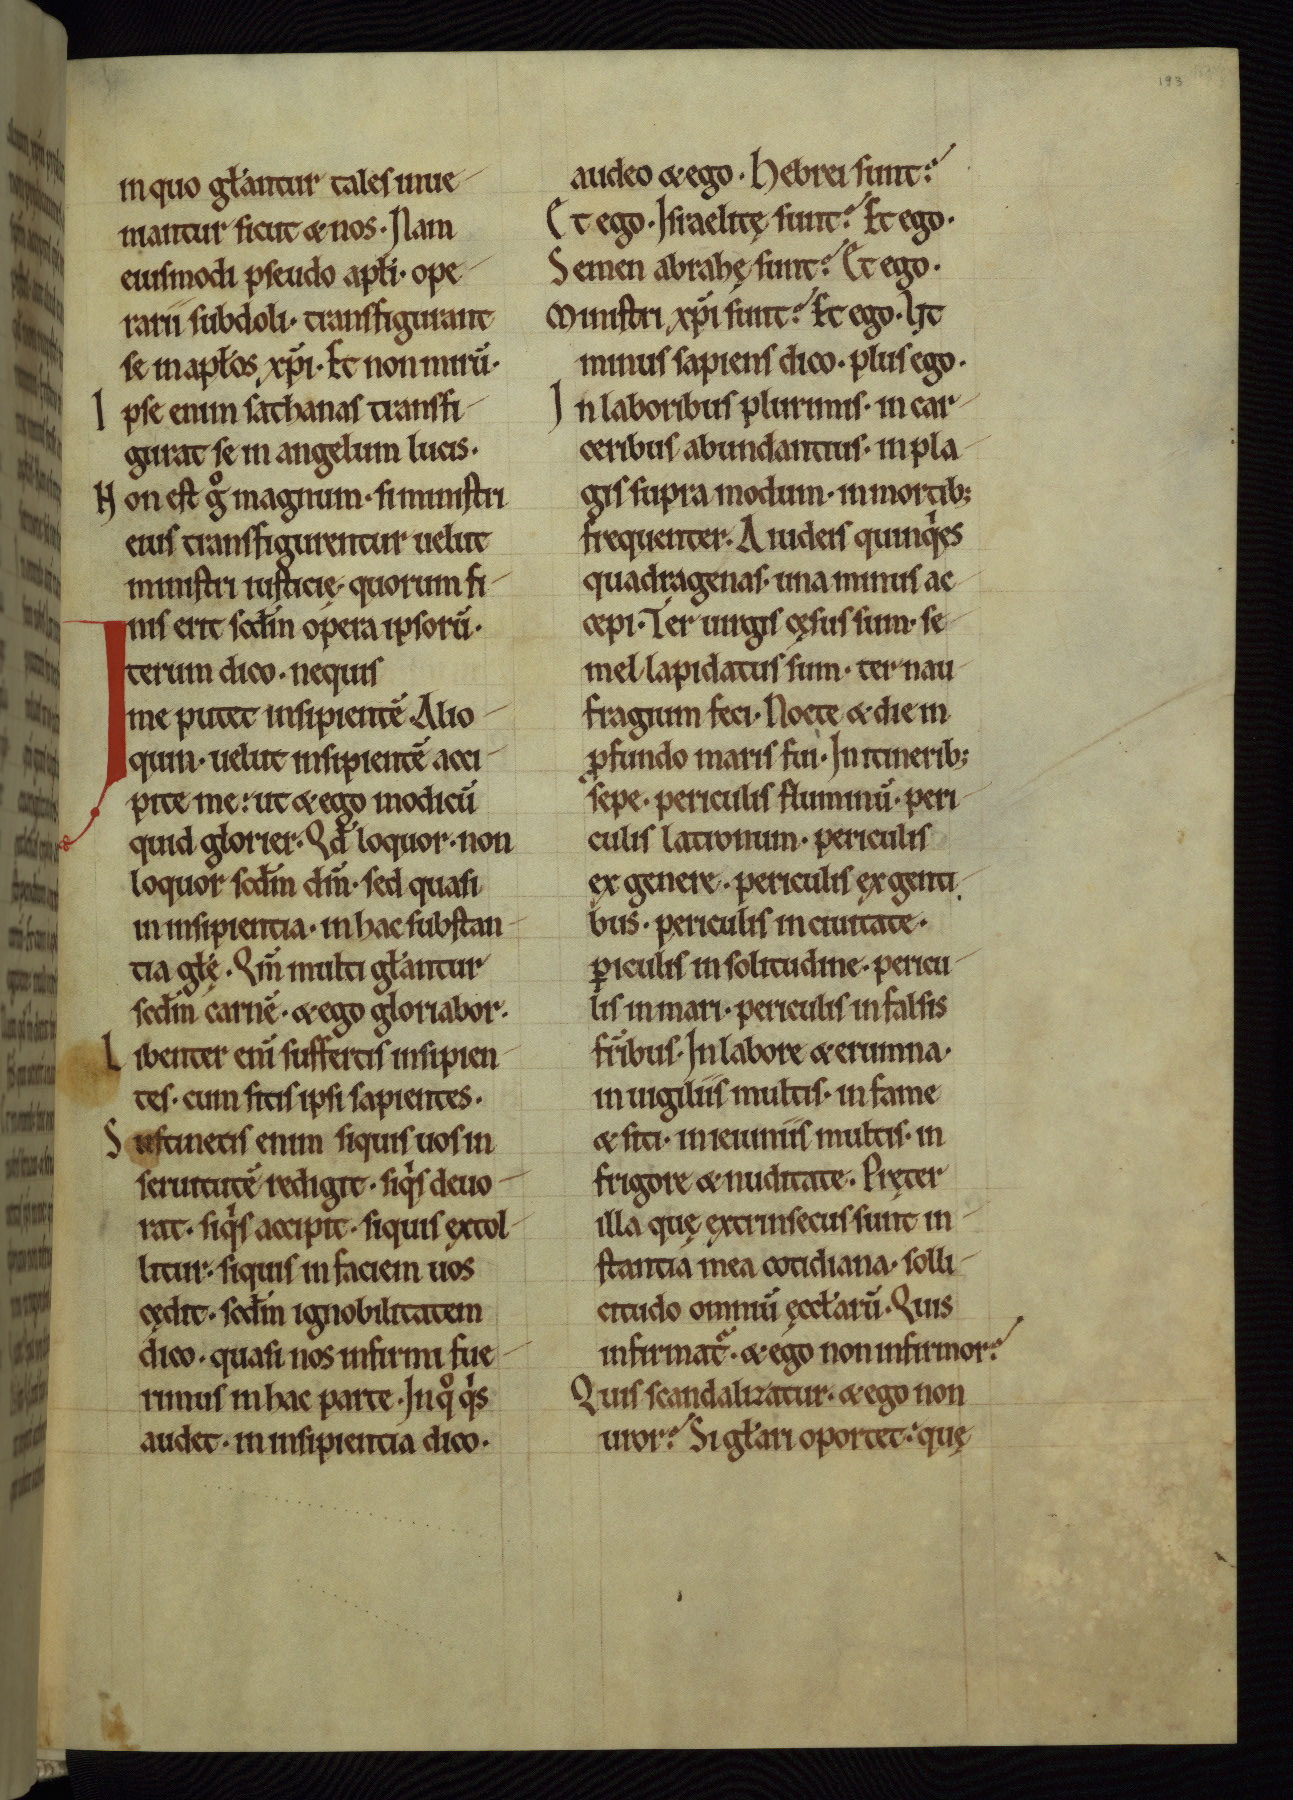 193
in quo gl̄antur tales inue
niantur sicut & nos. Nam
eiusmodi pseudo apl̄i. ope
rarii subdoli. transfigurant
se in apl̄os xp̄i. Et non mirū.
Ipse enim sathanas transfi
gurat se in angelum lucis.
Non est gͦ magnum. si ministri
eius transfigurentur uelut
ministri iusticię. quorum fi
nis erit scd̄m opera ipsorū.
Iterum dico. nequis
me putet insipientē. Alio
quin. uelut insipientē acci
pite me: ut & ego modicū
quid glorier. Qd̄ loquor. non
loquor scd̄m dm̄. sed quasi
in insipientia. in hac substan
tia gl̄ę. Qm̄ multi gl̄antur
scd̄m carnē. & ego gloriabor.
Libenter enī suffertis insipien
tes. cum sitis ipsi sapientes.
Sustinetis enim siquis uos in
seruitutē redigit. siqͥs deuo
rat. siqͥs accipit. siquis extol
litur. siquis in faciem uos
cędit. scd̄m ignobilitatem
dico. quasi nos infirmi fue
rimus in hac parte. In qͦ qͥs
audet. in insipientia dico.
audeo & ego. Hebrei sunt?
Et ego. Israelitę sunt? Et ego.
Semen abrahę sunt? Et ego.
Ministri xp̄i sunt? Et ego. Ut
minus sapiens dico. plus ego.
In laboribus plurimis. in car
ceribus abundantius. in pla
gis supra modum. in mortib;
frequenter. A iudeis quinqͥes
quadragenas. una minus ac
cepi. Ter uirgis cęsus sum. se
mel lapidatus sum. ter nau
fragium feci. Nocte & die in
ꝓfundo maris fui. In itinerib;
sepe. periculis fluminū. peri
culis latronum. periculis
ex genere. periculis ex genti
bus. periculis in ciuitate.
ꝑiculis in solitudine. pericu
lis in mari. periculis in falsis
fr̄ibus. In labore & erumna.
in uigiliis multis. in fame
& siti. in ieiuniis multis. in
frigore & nuditate. Pręter
illa quę extrinsecus sunt in
stantia mea cotidiana. solli
citudo omniū ęccl̄arū. Quis
infirmat᷑. & ego non infirmor?
Quis scandalizatur. & ego non
uror? Si gl̄ari oportet: quę